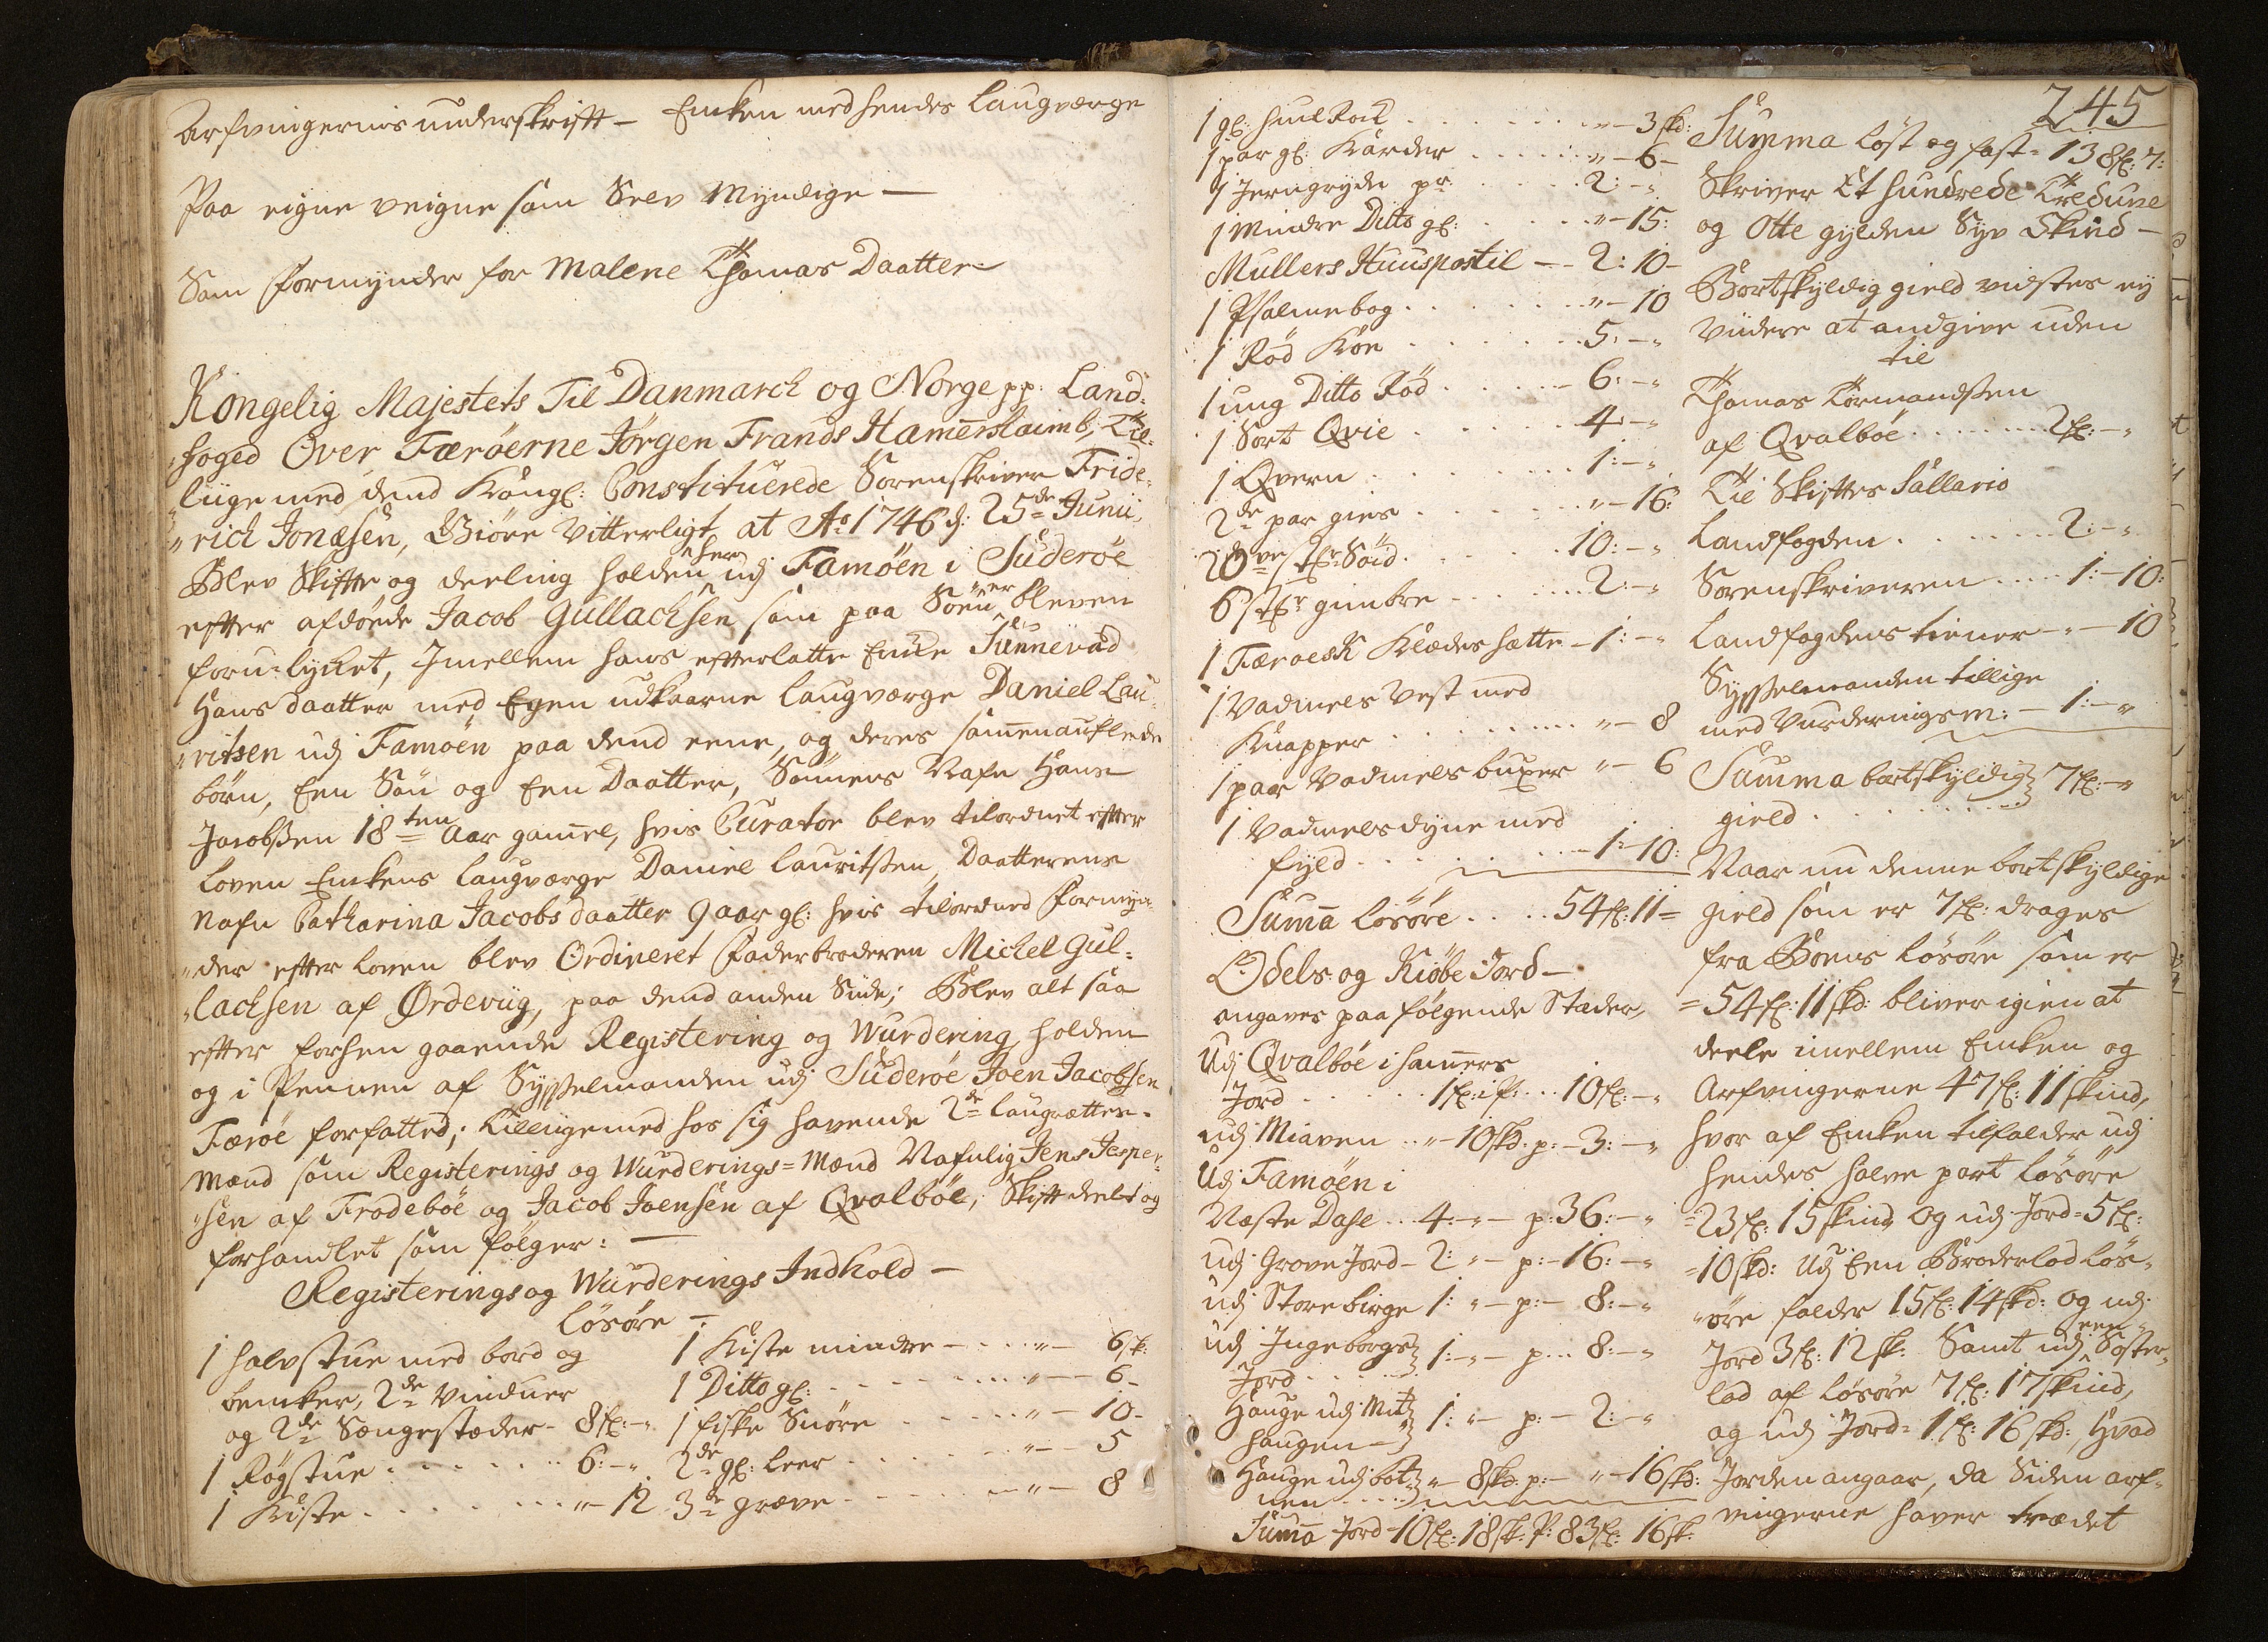 Arfvingernis underskrift – Enken med hendes Laugværge
Paa eigne veigne som Selv Myndige –
Som Formynder for Malene Thomas Daatter –
Kongelig Majestets Til Danmarck og Norge pp: Land-
foged Over Færöerne Jörgen Frands Hamerslaimb, Til-
liige med dend Kongl: Constituerede Sorenskriver Fride-
rich Jonæsen, Giöre Vitterligt at Ao 1746 d: 25de Junii,
Blev Skifte og deeling holden her udj Famöen i Suderöe
efter afdöede Jacob Gullachsen som paa Söen er bleven
foru-lycket, Imellem hans efterlatte Encke Sunnevad
Hans daatter med Egen udkaarne laugværge Daniel Lau-
ritsen udj Famöen paa dend eene, og deres samenauflede
börn, Een Sön og Een Daatter, Sönnens Nafn Hans
Jacobssen 18ten Aar gamel, hvis Curator blev tilordnet efter
Loven Enkens laugværge Daniel Lauritssen, Daatterens
Nafn Catharina Jacobsdaatter 9 aar gl: hvis tilordned Formyn-
der efter loven blev Ordineret Faderbroderen Michel Gul-
lachsen af Ördeviig, paa dend anden Siide; Blev alt saa
efter forhen gaaende Registering og Wurdering, holden
og i Pennen af Sysselmanden udj Suderöe Joen Jacobsen
Færöe forfatted; Tilligemed hos sig havende 2de laugrættes-
Mænd som Registerings og Wurderings-Mænd Nafnlig Jens Jesper-
sen af Frodeböe og Jacob Joensen af Qvalböe, Skift deelet og
forhandlet som fölger: –
Registerings og Wurderings Indhold –
Lösöre –
1 halvstue med bord og
bencker, 2de Vinduer
og 2de Sengestæder – 8 fl: – "
1 Rögstue . . . . 6: – "
1 Kiste . . . . " – 12
1 Kiste mindre – . . " – 6 sk:
1 Ditto gl: . . . . " – 6 –
1 fiske Snöre . . . . " – 10 –
2de gl: leer . . . . " – 5
3de greve . . . . " – 8
245
1 gl: hiul Rock . . . . " – 3 skd:
1 par gl: Karder . . . . " – 6 –
1 Jerngryde pr . . . . 2: – "
1 Mindre Ditto gl: . . . . " – 15:
Mullers Huuspostil – – 2: 10 –
1 Psalmebog . . . . " – 10
1 Röd Köe . . . . 5: – "
1 ung Ditto Röd . . . . 6: – "
1 Sort Qvie . . . . 4 – "
1 Qvern . . . . 1: – "
2de par gies . . . . " – 16:
20ve stkr Söid . . . . 10: – "
6 stkr gimbre . . . . 2: – "
1 Færoesk Klædes hatte – 1: – "
1 Vadmels Vest med
Knapper . . . . " – 8
1 paar Vadmels buxer " – 6
1 Vadmels dyne med
fyld . . . . – 1 – 10:
Suma Lösöre . . . . 54 fl: 11 =
Odels og Kiöbe Jord –
angaves paa fölgende Stæder,
Udj Qvalböe i hamers
Jord . . . . 1 fl: i P: . . 10 fl: – "
udj Miaven . . " – 10 skd. p: – 3: – "
Udj Famöen i
Næste Dahl . . 4: – " – p: 36: – "
udj Grove Jord – 2: " – p: – 16: – "
udj Storebirge 1: " – p: – 8: – "
udj Ingeborgs
Jord . . . . 1: – " – p . . 8: – "
Hauge udj Mit-
haugen – 1: " – p: – 2: – "
Hauge udj bot-
nen . . . . " – 8 skd. p: – " – 16 skd:
Suma Jord – 10 fl: 18 sk: P: 83 fl: 16 sk:
Summa löst og fast = 138 fl: 7:
Skriver Et hundrede Tredive
og Otte gylden Syv Skind –
Bortskyldig gield vidstes ey
Viidere at andgive uden
til
Thomas Tormandssen
af Qvalböe . . . . 2 fl: – "
Til Skiftes Sallario
Landfogden . . . . 2: – "
Sorenskriveren . . . . 1: – 10:
Landfogdens tiener – " – 10
Sysselmanden tillige
med Vurderingsm: – 1: – "
Summa bortskyldig
gield . . . . 7 fl: – "
Naar nu denne bortskyldige
gield som er 7 fl: drages
fra Boens lösöre som er
= 54 fl: 11 skd: bliver igien at
deele imellem Enken og
Arfvingerne 47 fl: 11 skind,
hvor af Enken tilfalder udj
hendes halve part lösöre
= 23 fl: 15 skind og udj Jord = 5 fl:
= 10 skd: Udj Een Broderlod lös-
öre falder 15 fl: 14 skd: og udj
Jord 3 fl: 12 sk: Samt udj een Söster-
lod af lösöre 7 fl: 17 skind,
og udj Jord = 1 fl: 16 skd:, Hvad
Jorden angaar, da Siden arf-
vingerne haver trædet